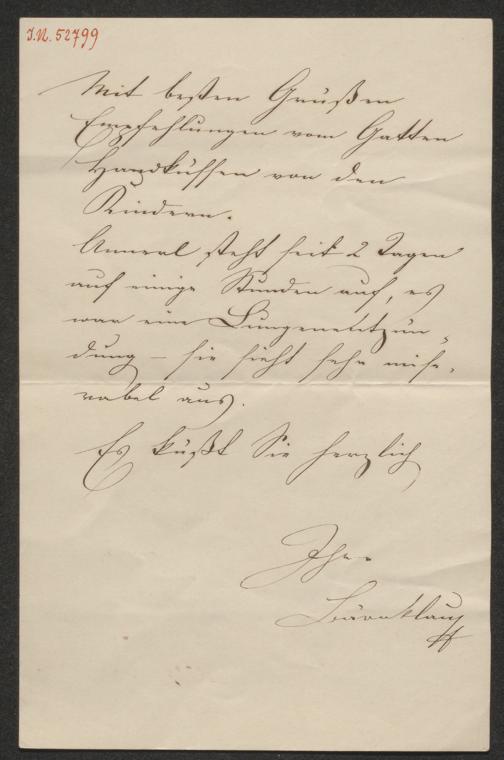 I.N. 52799
Mit besten Grüßen
Empfehlungen vom Gatten
Handküssen von den
Kindern.
Annerl steht seit 2 Tagen
auf einige Stunden auf, es
war eine Lungenentzün-
dung – sie sieht sehr mise-
rabel aus.
Es küßt Sie herzlich
Ihre